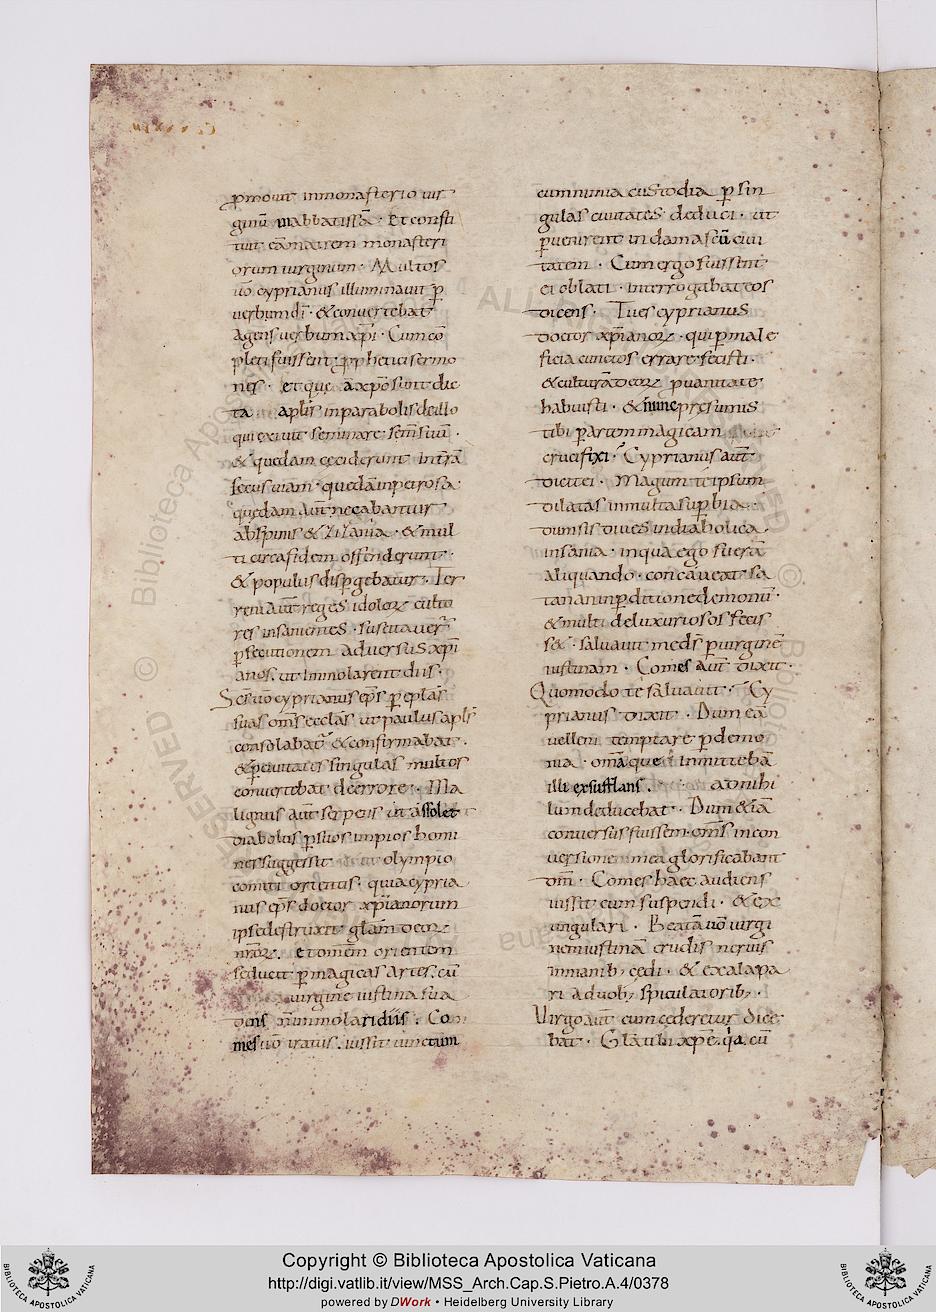 p̄mouit inmonasterio uir
ginū inabbatissā · Et consti
tuit eāmatrem monasteri
orum uirginum · Multos
uō cyprianus illuminauit p̄
uerbum dī · & conuertebat
agens uerbum xp̄i · Cum cō
pleti fuissent p̄phetici sermo
nes · et que a xp̄o sunt dic
ta aplīs inparabolis de illo
qui exiuit seminare semēsuū ·
& quedam ceciderunt intrā
secus uiam · quedā inpetrosa ·
quedam aūt necabantur
abspinis & zizania · & mul
ti circa fidem offenderunt ·
& populus disp̄gebatur · Ter
reni aūt reges idolorꝝ culto
res insanientes · suscitauer̄
p̄secutionem aduersus xp̄i
anos · ut immolarent diis ·
Sc̄s uō cyprianus ep̄s p̄ ep̄las
suas om̄s ecclas ut paulus apl̄s
consolabat̄ & confirmabat ·
& p̄ciuitates singulas multos
conuertebat de errore · Ma
lignus aūt serpens ut assolet
diabolus p̄suos impios homi
nes suggessit olympio
comiti orientis · quia cypria
nus ep̄s doctor xp̄ianorum
ipse destruxit glām deorꝝ
nr̄orꝝ · et omēm orientem
seducit p̄magicas artes · cū
uirgine iustina sua
dens n̄ immolari diis · Co
mes uō iratus · iussit iunctum
cum nimia custodia p̄ sin
gulas ciuitates deduci · ut
p̄uenirent in damascū ciui
tatem · Cum ergo fuissent
ei oblati · interrogabat eos
dicens · Tu es cyprianus
doctor xp̄ianorꝝ · qui p̄ male
ficia cunctos errare fecisti ·
& culturā deorꝝ p̄ uanitate
habuisti · & nunc presumis
tibi p̄ artem magicam
crucifixi · Cyprianus aūt
dicit ei · Magum te ipsum
dilatas in multa sup̄bia ·
dum sis diues in diabolica
insania · in qua ego fuerā
aliquando · concaueat sa
tanan in p̄ditione demonū ·
& multi de luxuriosos fecis
se · saluauit me ds̄ p̄ uirginē
iustinam · Comes aūt dixit ·
Quomodo te saluauit · Cy
prianus dixit · Dum eā
uellem temptare p̄ demo
nia · omā que inmittebā
illi exsufflans · ad nihi
lum deducebat · Dum & iā
conuersus fuissem · om̄s in con
uersione mea glorificabant
dm̄ · Comes haec audiens
iussit eum suspendi · & ex
ungulari · Beatā uō uirgi
nem iustinā crudis neruis
in manib; cedi · & ex alapa
ri a duob; spiculatorib; ·
Uirgo aūt cum cederetur dice
bat · Glā tibi xp̄e · q̄a cū
Copyright © Biblioteca Apostolica Vaticana
http://digi.vatlib.it/view/MSS_Arch.Cap.S.Pietro.A.4/0378
powered by DWork • Heidelberg University Library